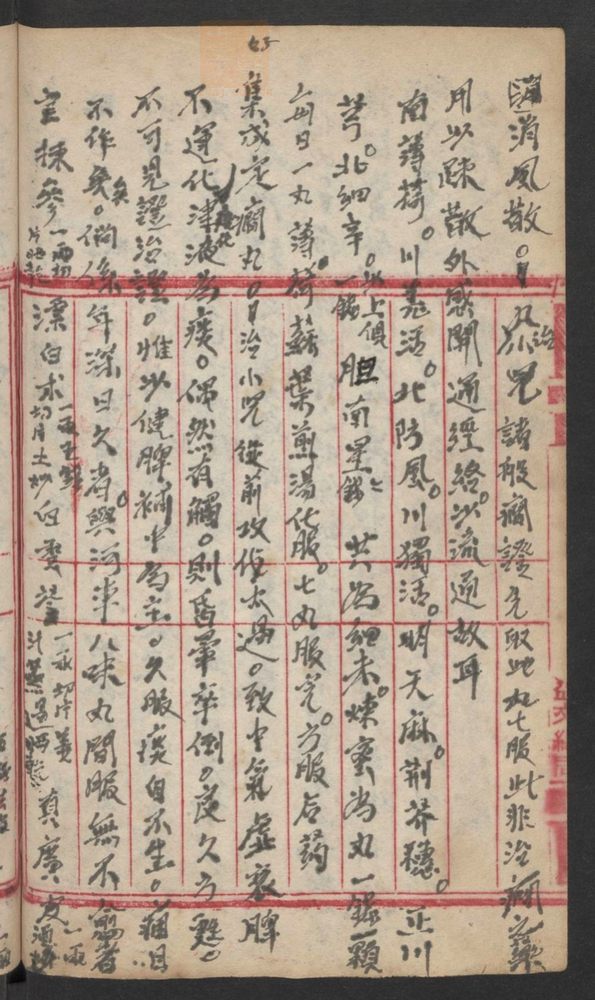 消風散。凡治小兒諸般癇證先取此丸七服此非治癇之藥
用以疎散外感開通經絡以流通故耳
南薄荷。川羗活。北防風。川獨活。明天麻。荊芥穗。正川
芎。北細辛。以上俱一錢 胆南星二錢 共為細末。煉蜜為丸一錢一顆
每日一丸薄荷蘇葉煎湯化服。七丸服完。方服后药
集成定癇丸。治小兒從前攻伐太過。致中氣虛衰脾
不運化津液為痰。偶然有觸。則昏暈卒倒。良久方甦。
不可見證治證。惟以健脾補中為主。久服痰自不生。癇自
不作矣。倘係年深日久者。與河車八味丸間服無不
官揀參一兩切片 漂白术 切片土炒 白雲苓 真廣皮